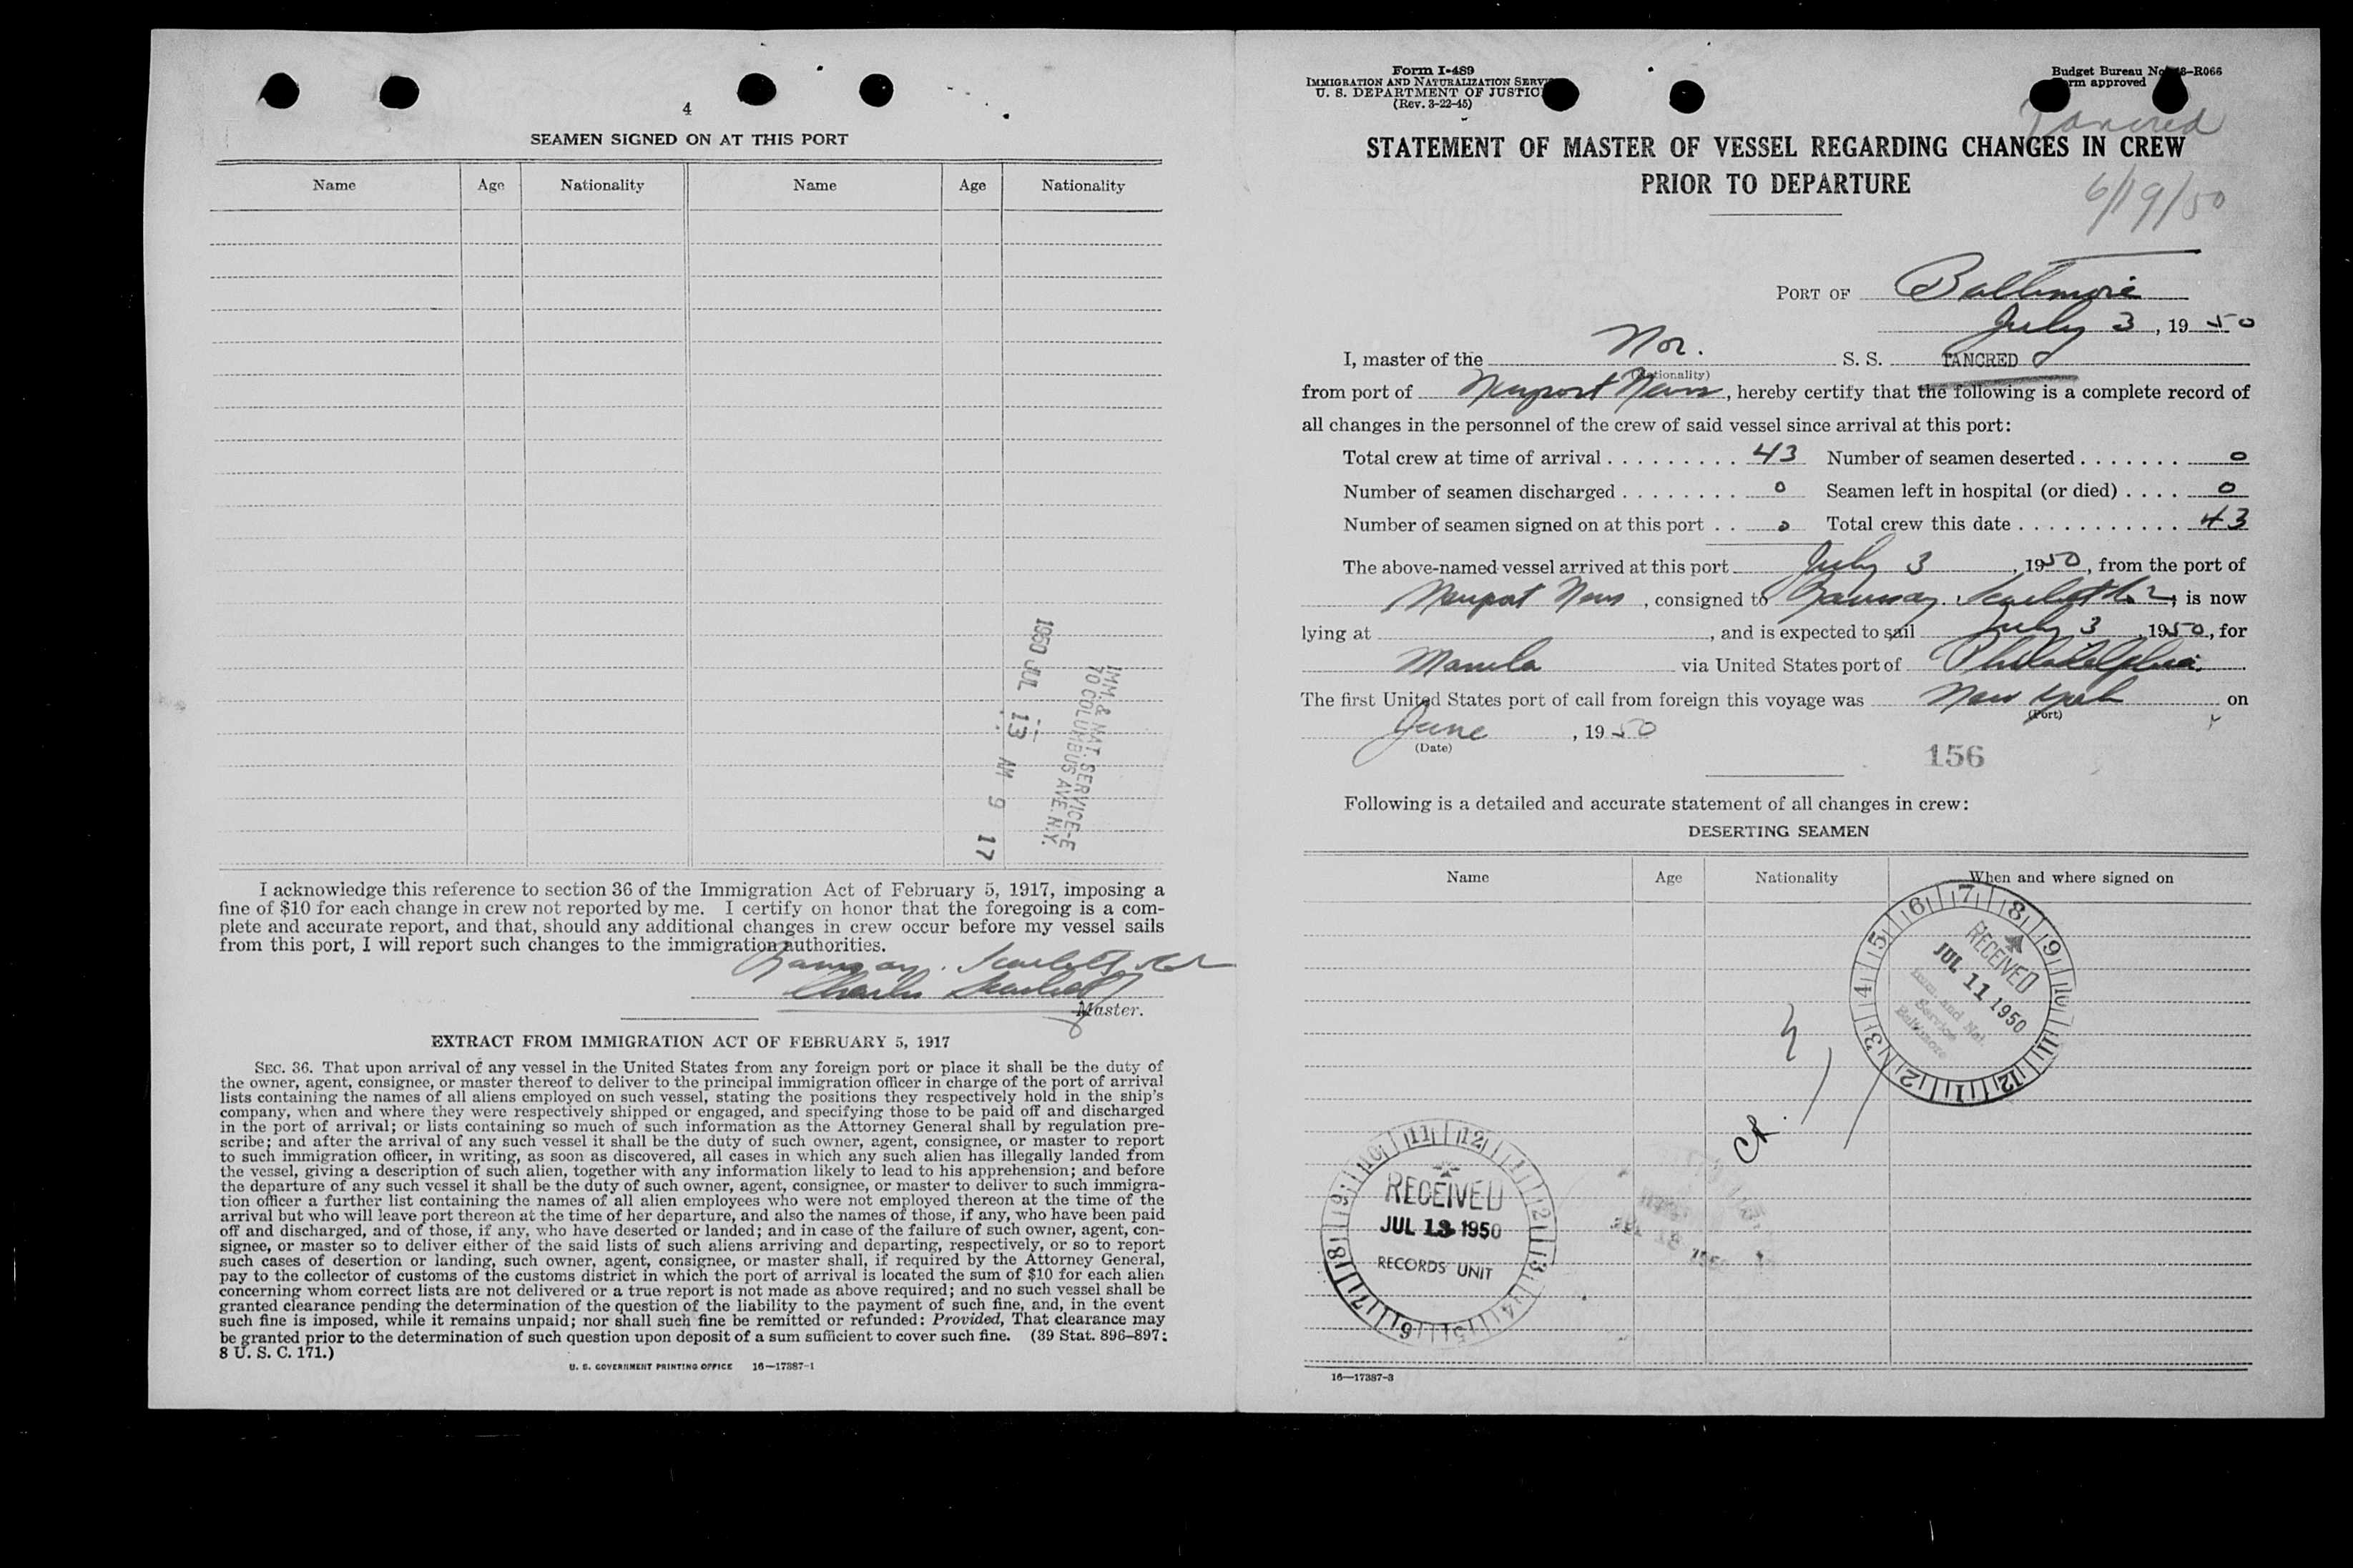 4
SEAMEN SIGNED ON AT THIS PORT
Name Age Nationality Name Age Nationality
1950 JUL 13 AM 9 17
IMM. & NAT. SERVICE-E
70 COLUMBUS AVE. N.Y.
I acknowledge this reference to section 36 of the Immigration Act of February 5, 1917, imposing a
fine of $10 for each change in crew not reported by me. I certify on honor that the foregoing is a com-
plete and accurate report, and that, should any additional changes in crew occur before my vessel sails
from this port, I will report such changes to the immigration authorities.
Ramsay. Scarlett & Co
Charles Scarlett
Master.
EXTRACT FROM IMMIGRATION ACT OF FEBRUARY 5, 1917
SEC. 36. That upon arrival of any vessel in the United States from any foreign port or place it shall be the duty of
the owner, agent, consignee, or master thereof to deliver to the principal immigration officer in charge of the port of arrival
lists containing the names of all aliens employed on such vessel, stating the positions they respectively hold in the ship's
company, when and where they were respectively shipped or engaged, and specifying those to be paid off and discharged
in the port of arrival; or lists containing so much of such information as the Attorney General shall by regulation pre-
scribe; and after the arrival of any such vessel it shall be the duty of such owner, agent, consignee, or master to report
to such immigration officer, in writing, as soon as discovered, all cases in which any such alien has illegally landed from
the vessel, giving a description of such alien, together with any information likely to lead to his apprehension; and before
the departure of any such vessel it shall be the duty of such owner, agent, consignee, or master to deliver to such immigra-
tion officer a further list containing the names of all alien employees who were not employed thereon at the time of the
arrival but who will leave port thereon at the time of her departure, and also the names of those, if any, who have been paid
off and discharged, and of those, if any, who have deserted or landed; and in case of the failure of such owner, agent, con-
signee, or master so to deliver either of the said lists of such aliens arriving and departing, respectively, or so to report
such cases of desertion or landing, such owner, agent, consignee, or master shall, if required by the Attorney General,
pay to the collector of customs of the customs district in which the port of arrival is located the sum of $10 for each alien
concerning whom correct lists are not delivered or a true report is not made as above required; and no such vessel shall be
granted clearance pending the determination of the question of the liability to the payment of such fine, and, in the event
such fine is imposed, while it remains unpaid; nor shall such fine be remitted or refunded: Provided, That clearance may
be granted prior to the determination of such question upon deposit of a sum sufficient to cover such fine. (39 Stat. 896–897;
8 U. S. C. 171.)
U. S. GOVERNMENT PRINTING OFFICE 16—17387-1
Form I-489
IMMIGRATION AND NATURALIZATION SERV
U. S. DEPARTMENT OF JUSTIC
(Rev. 3-22-45)
Budget Bureau No. -R066
rm approved
Tancred
STATEMENT OF MASTER OF VESSEL REGARDING CHANGES IN CREW
PRIOR TO DEPARTURE
6/19/50
PORT OF Baltimore
July 3, 19 50
I, master of the Nor. S. S. TANCRED
(Nationality)
from port of Newport News, hereby certify that the following is a complete record of
all changes in the personnel of the crew of said vessel since arrival at this port:
Total crew at time of arrival 43 Number of seamen deserted 0
Number of seamen discharged 0 Seamen left in hospital (or died) 0
Number of seamen signed on at this port 0 Total crew this date 43
The above-named vessel arrived at this port July 3, 1950, from the port of
Newport News, consigned to Ramsay. Scarlett & Co; is now
lying at , and is expected to sail July 3, 1950, for
Manila via United States port of Philadelphia.
The first United States port of call from foreign this voyage was New York on
(Port)
June, 19 50
(Date)
156
Following is a detailed and accurate statement of all changes in crew:
DESERTING SEAMEN
Name Age Nationality When and where signed on
6 7 8 9 10 11 12 1 2 3 4 5
RECEIVED
JUL 11 1950
Imm. and Nat.
Service
Baltimore
11 12 1 2 3 4 5 6 7 8 9 10
RECEIVED
JUL 13 1950
RECORDS UNIT
16—17387-3